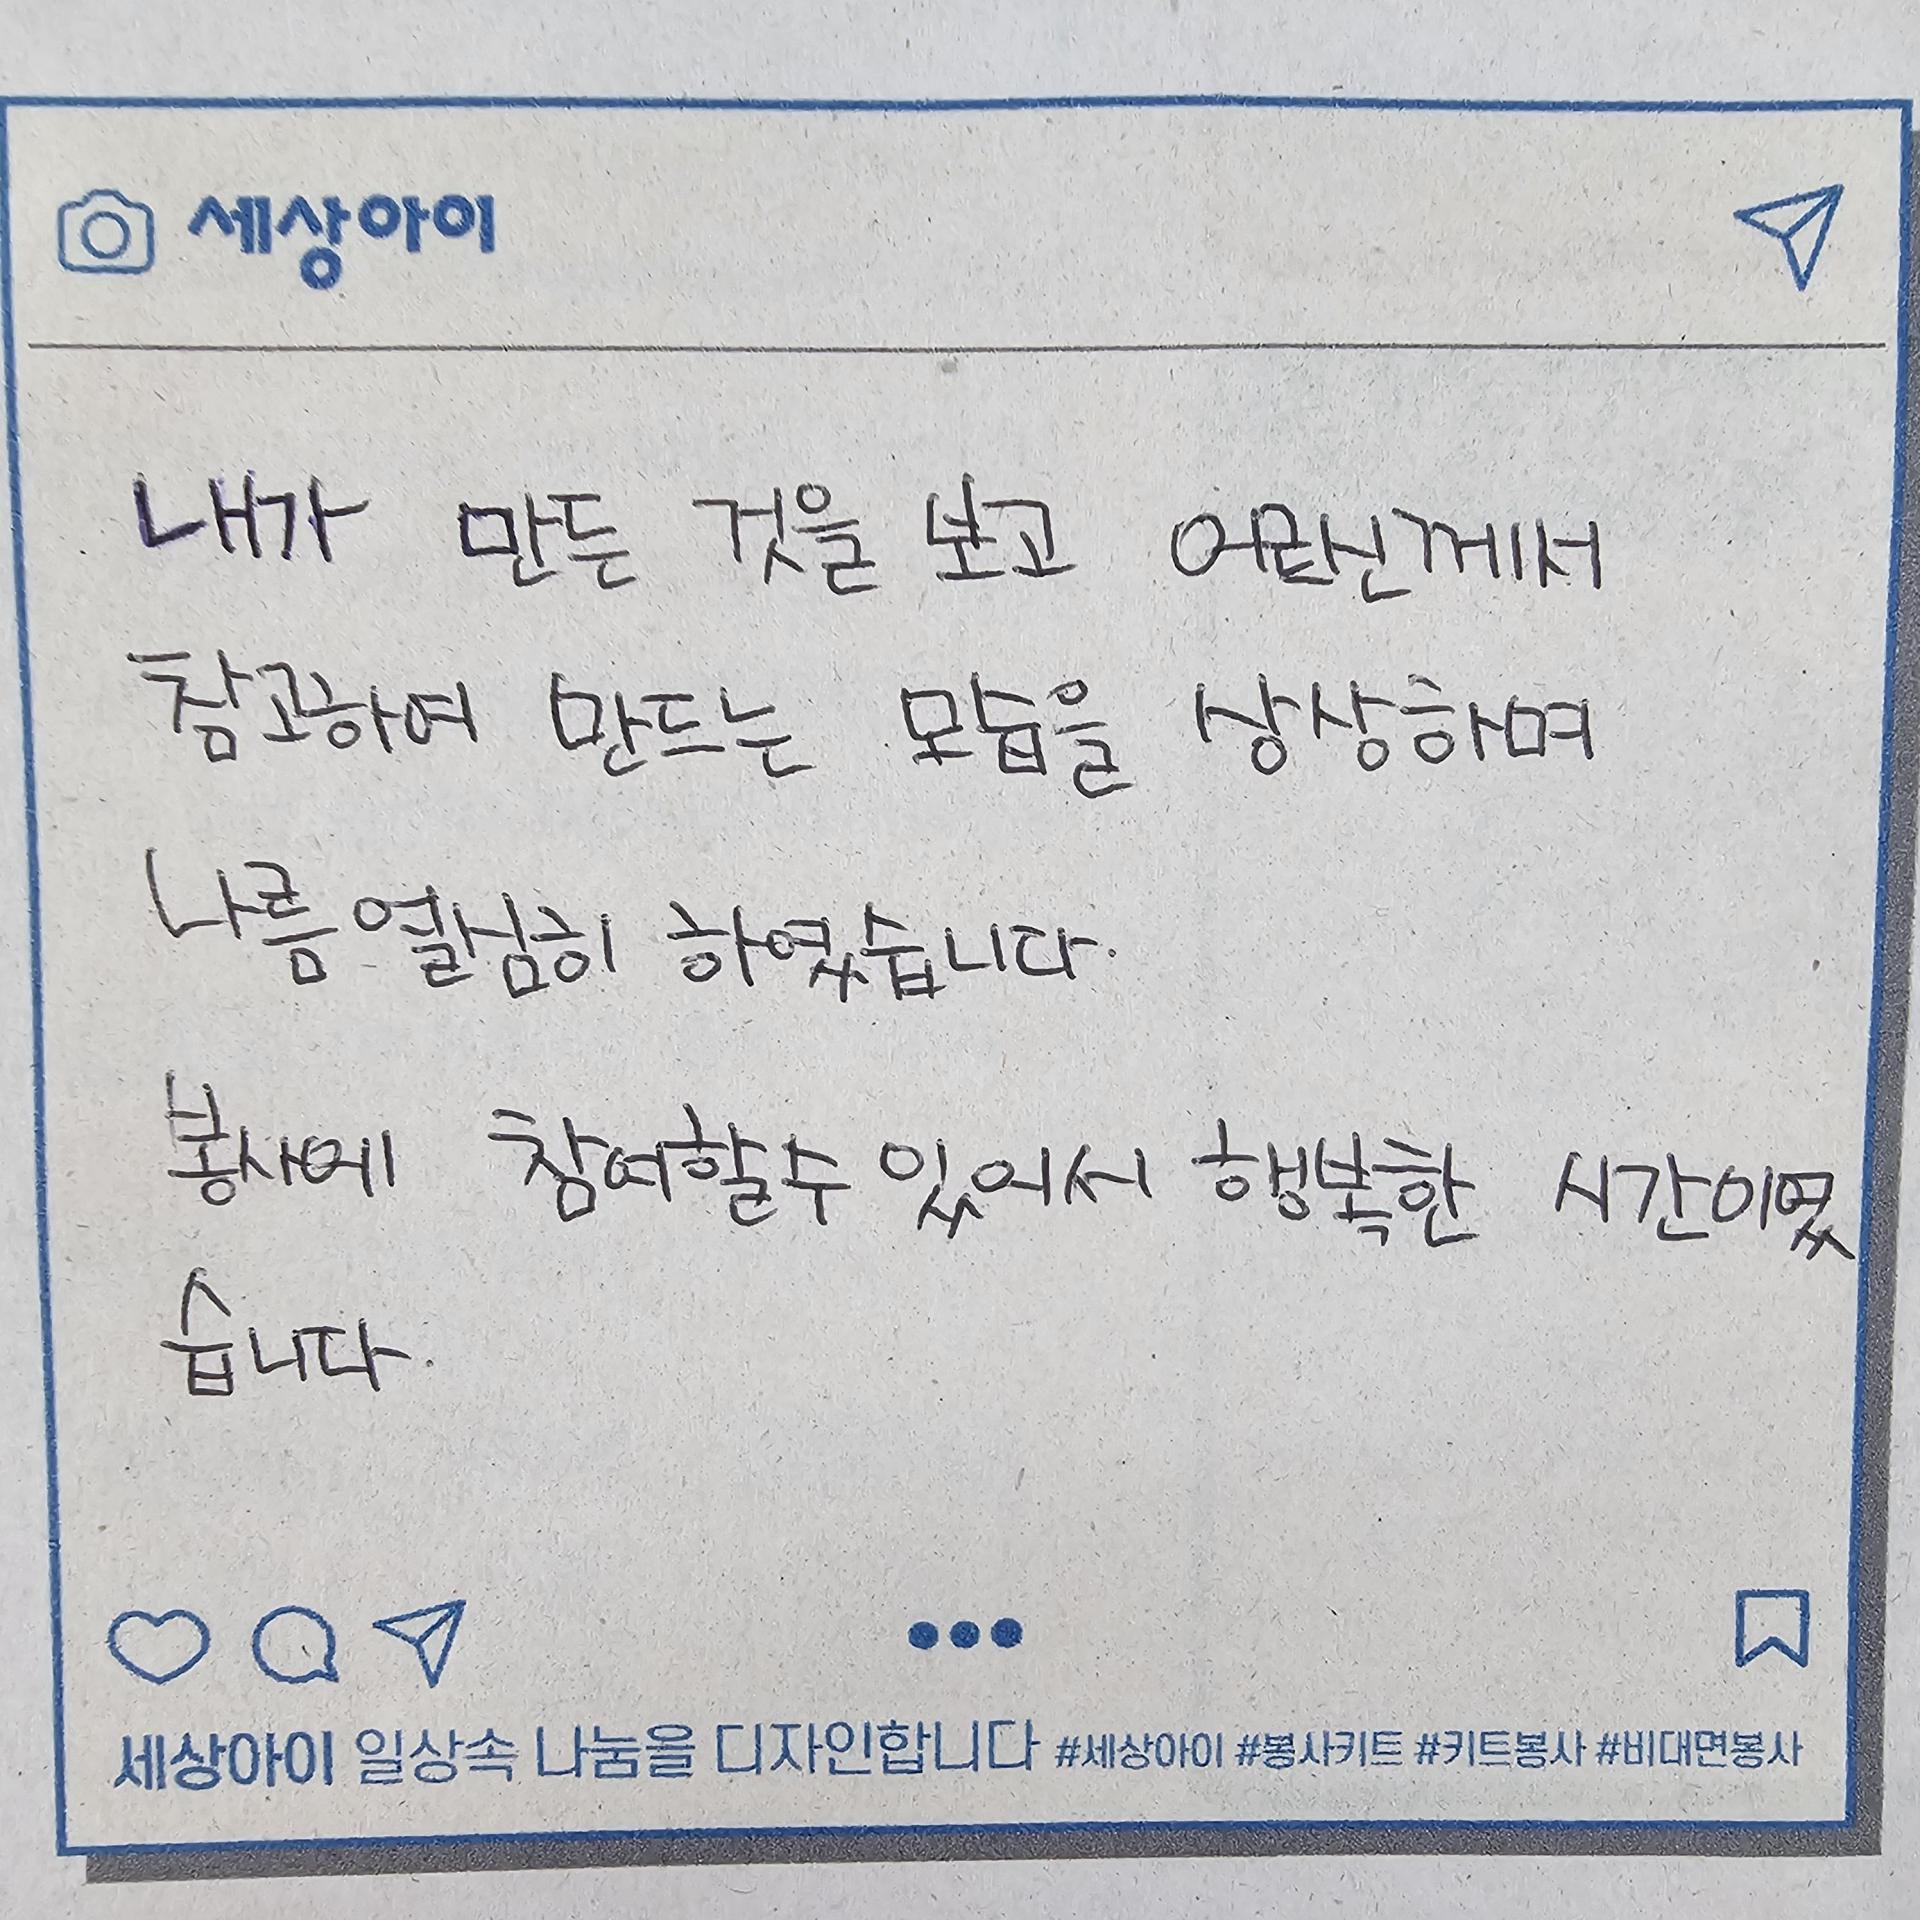 세상아이
내가 만든 것을 보고 어르신께서
참고하여 만드는 모습을 상상하며
나름 열심히 하였습니다.
봉사에 참여할수 있어서 행복한 시간이였
습니다.
세상아이 일상속 나눔을 디자인합니다 #세상아이 #봉사키트 #키트봉사 #비대면봉사